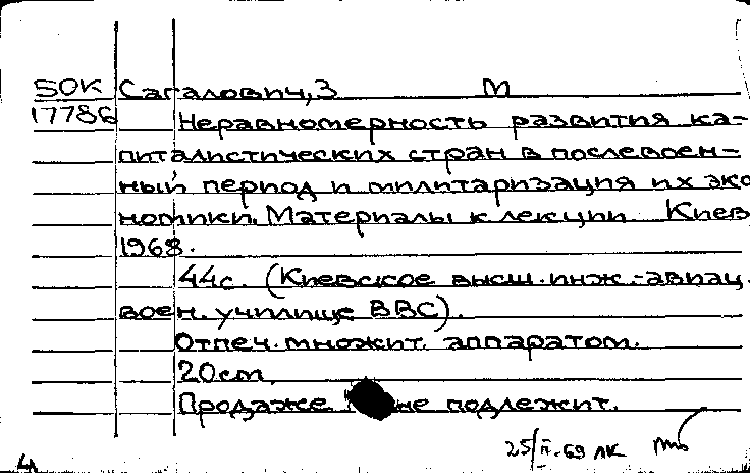 50К Сагалович, З М
17786 Неравномерность развития ка-
питалистических стран в послевоен-
ный период и милитаризация их эко
номики. Материалы к лекции Киев
1968.
44с. (Киевское высш. инж.-авиац.
воен. училище ВВС).
Отпеч. множит. аппаратом.
20см.
Продаже не подлежит.
25/II.69 ЛК